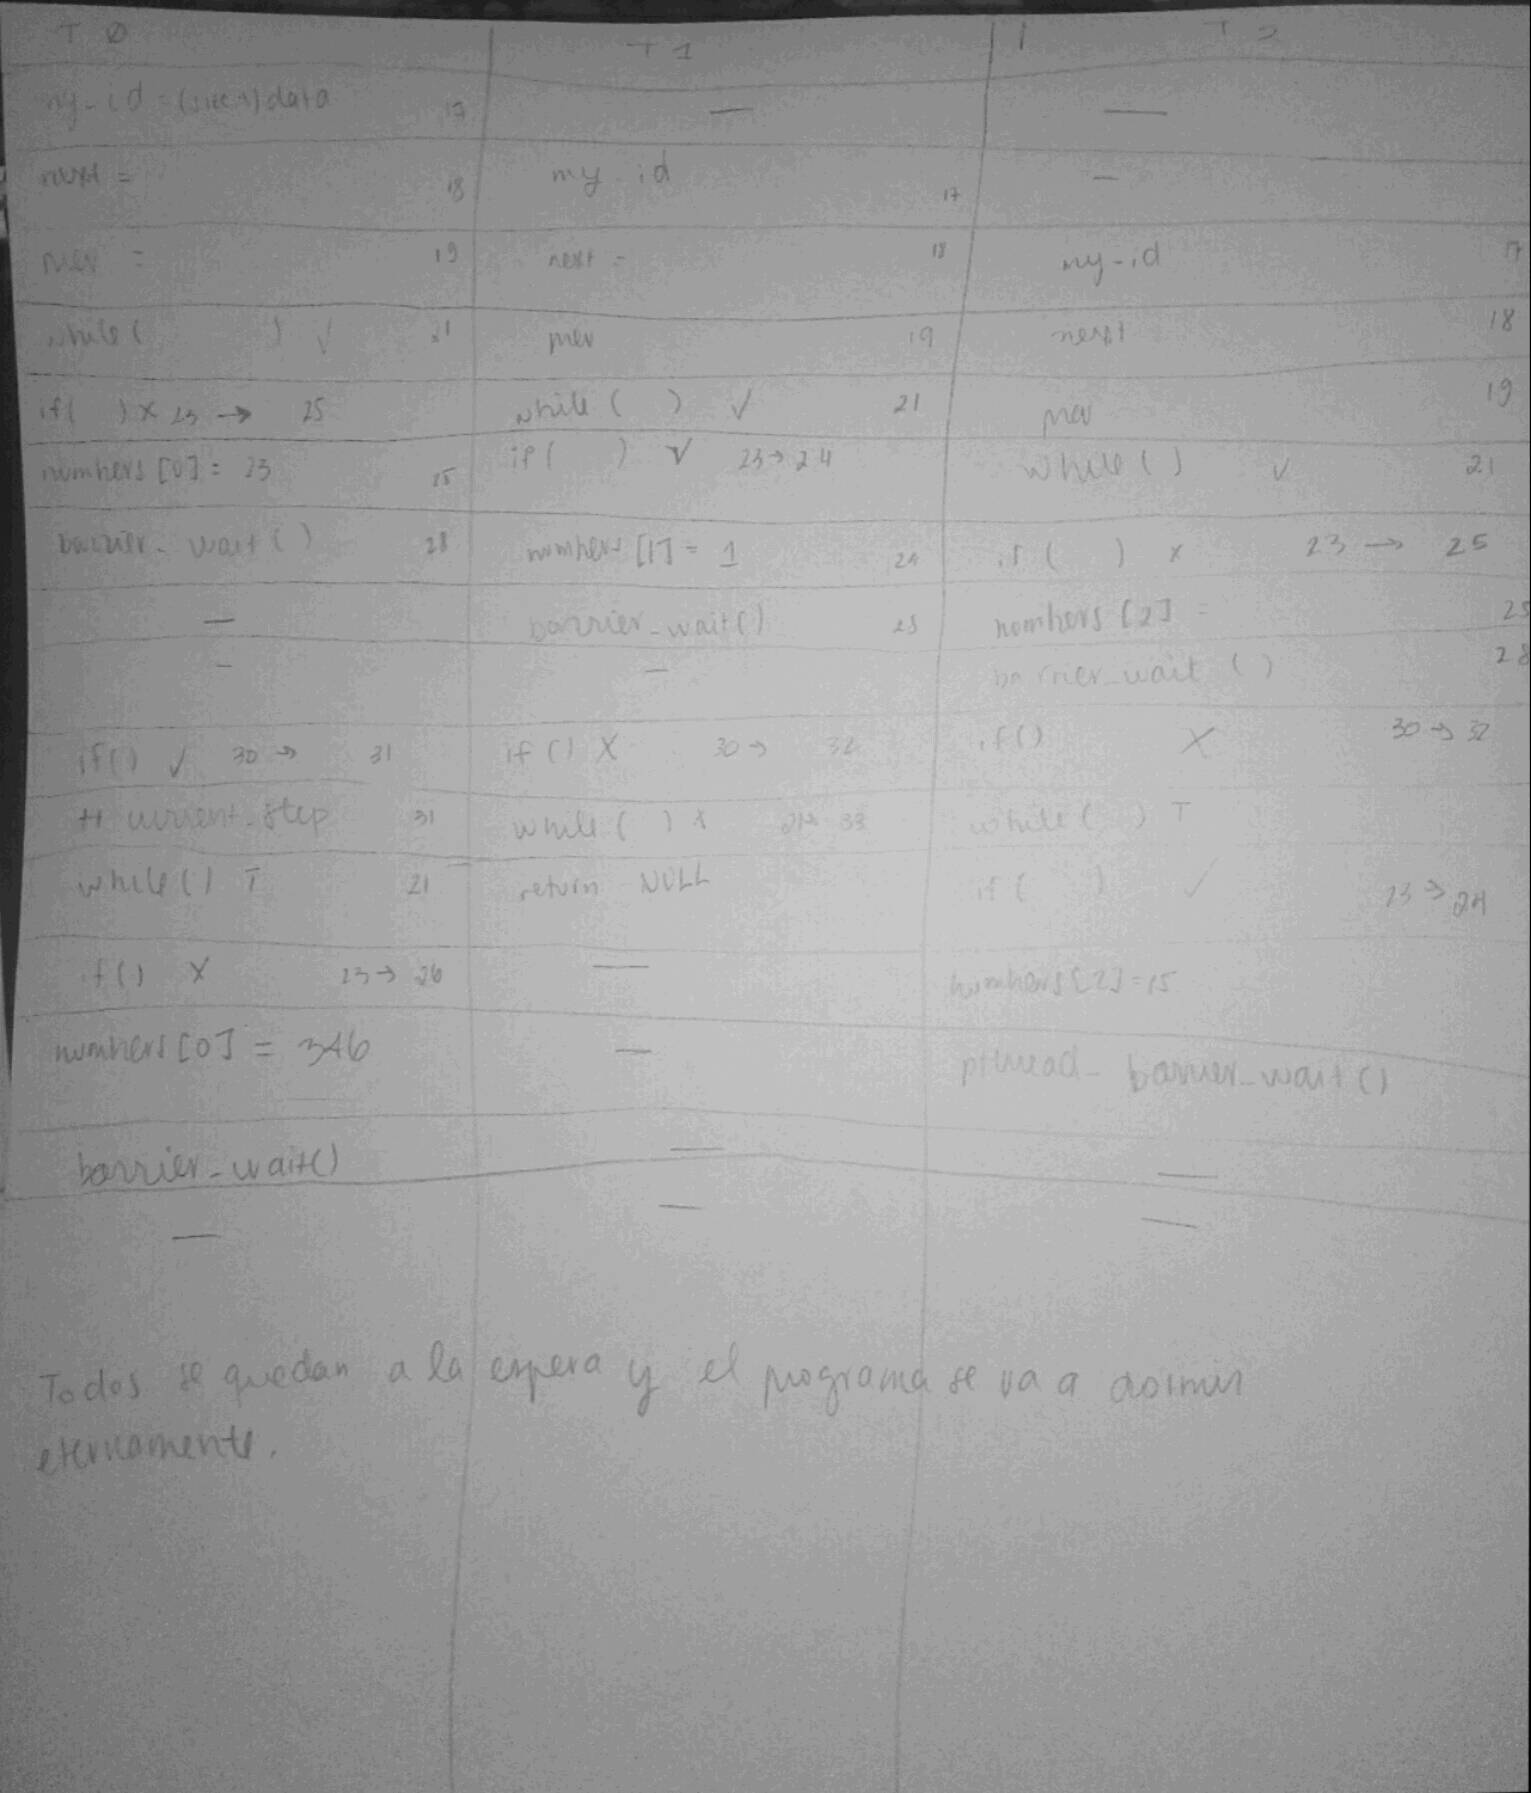 T 0 T 1 T 2
my-id = (size_t) data 17 — —
next = 18 my_id 17 —
prev = 19 next = 18 my-id 17
while ( ) ✓ 21 prev 19 next 18
if( ) x 23 → 25 while ( ) ✓ 21 prev 19
numbers [0] = 23 25 if ( ) ✓ 23→24 while ( ) ✓ 21
barrier_wait () 28 numbers [1] = 1 24 if ( ) x 23 → 25
— barrier_wait() 25 numbers [2] = 25
— — barrier_wait () 28
if() ✓ 30 → 31 if () X 30 → 32 if() X 30 → 32
++ current_step 31 while ( ) x 21→ 33 while ( ) T
while () T 21 return NULL if ( ) ✓ 23 → 24
if () X 23 → 26 — numbers [2] = 15
numbers [0] = 346 — pthread_barrier_wait ()
barrier_wait() — —
— — —
Todos se quedan a la espera y el programa se va a dormir
eternamente.